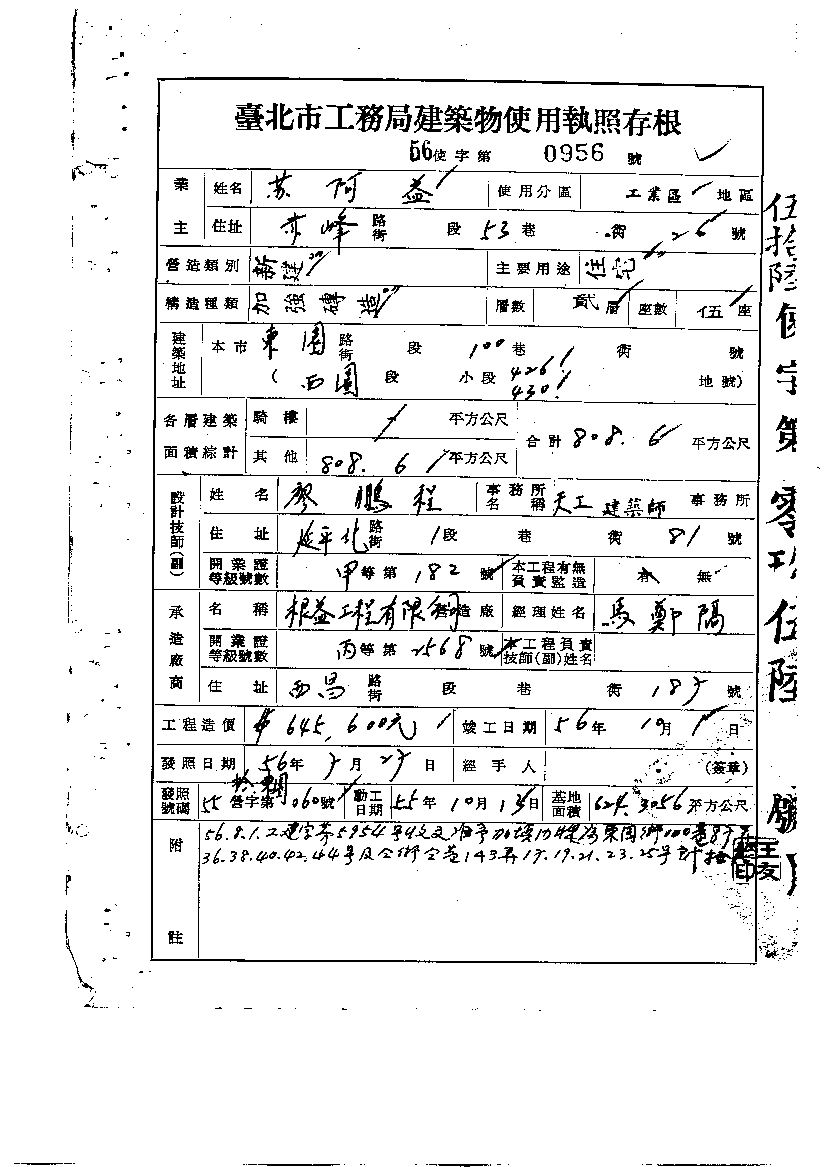 臺北市工務局建築物使用執照存根
56使字第 0956 號
業主 姓名 苏阿益 使用分區 工業區 地區
住址 赤峰 路街 段 53 巷 衖 26 號
營造類別 新建 主要用途 住宅
構造種類 加強磚造 層數 貳層 座數 伍座
建築地址 本市 東園 路街 段 100 巷 衖 號
(西園 段 小段 426 430 地號)
各層建築面積綜計 騎樓 平方公尺 合計 808.6 平方公尺
其他 808.6 平方公尺
設計技師(副) 姓名 廖鵬程 事務所名稱 天工建築師 事務所
住址 延平北 路街 1段 巷 衖 81 號
開業證等級號數 甲等第 182 號 本工程有無負責監造 有 無
承造廠商 名稱 根益工程有限公司 營造廠 經理姓名 馬鄭隔
開業證等級號數 丙等第 2568 號 本工程負責技師(副)姓名
住址 西昌 路街 段 巷 衖 號
工程造價 645,600元 竣工日期 56年 10月 日
發照日期 56年 月 日 經手人 (簽章)
發照號碼 55 營字第 060號 動工日期 55年 10月 15日 基地面積 624.3056 平方公尺
附註 56.8.1.2建字第5954號
36.38.40.42.44号及 143弄17.19.21.23.25号
伍拾陸使字第零玖伍陸號